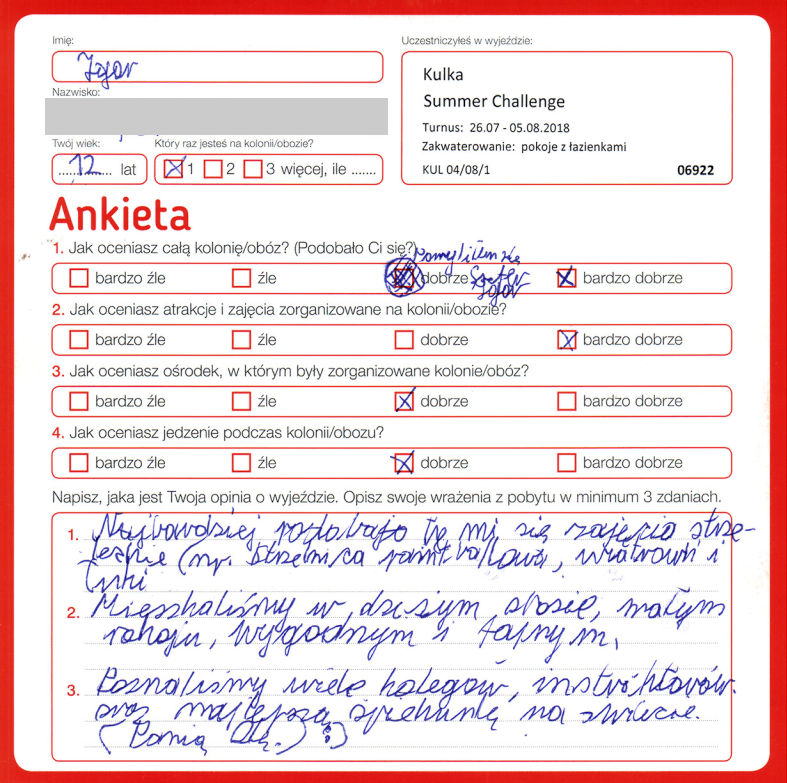 Imię:
Igor
Uczestniczyłeś w wyjeździe:
Kulka
Summer Challenge
Turnus: 26.07 - 05.08.2018
Zakwaterowanie: pokoje z łazienkami
KUL 04/08/1 06922
Nazwisko:
Twój wiek:
12 lat
Który raz jesteś na kolonii/obozie?
1 2 3 więcej, ile .......
Ankieta
1. Jak oceniasz całą kolonię/obóz? (Podobało Ci się?)
Pomyliłem się
bardzo źle źle dobrze bardzo dobrze
Igor
2. Jak oceniasz atrakcje i zajęcia zorganizowane na kolonii/obozie?
bardzo źle źle dobrze bardzo dobrze
3. Jak oceniasz ośrodek, w którym były zorganizowane kolonie/obóz?
bardzo źle źle dobrze bardzo dobrze
4. Jak oceniasz jedzenie podczas kolonii/obozu?
bardzo źle źle dobrze bardzo dobrze
Napisz, jaka jest Twoja opinia o wyjeździe. Opisz swoje wrażenia z pobytu w minimum 3 zdaniach.
1. Najbardziej podobają mi się zajęcia strze-
leckie (np. strzelnica paintballowa, wiatrówki i
łuki
2. Mieszkaliśmy w małym
pokoju, wygodnym i fajnym.
3. Poznaliśmy wiele kolegów, instróktorów
oraz najlepszą opiekunkę na świecie.
(Panią :)